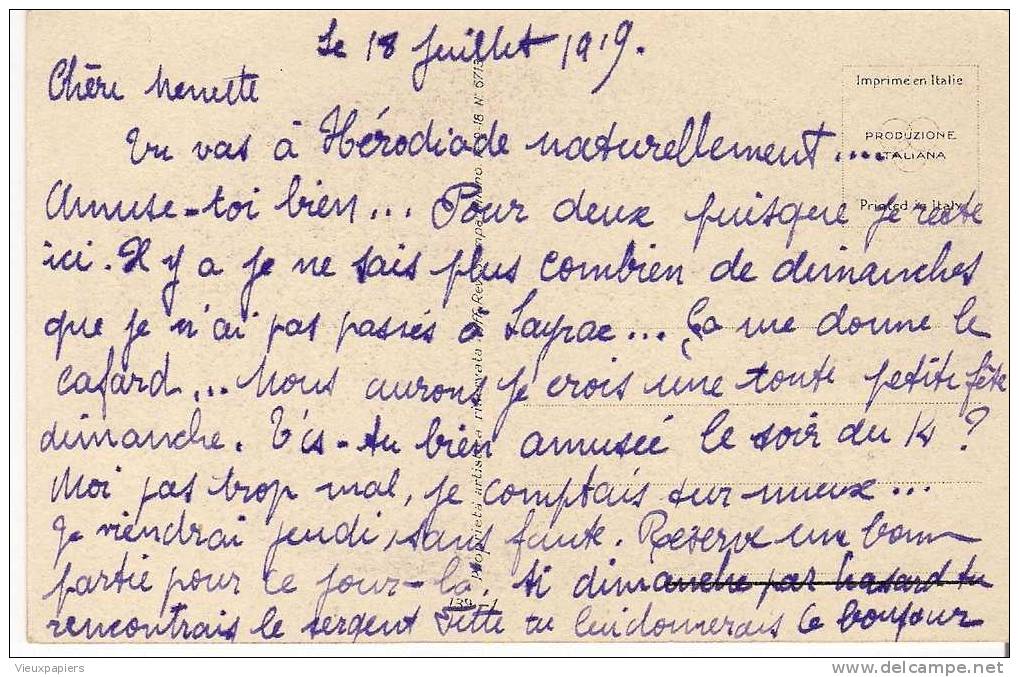 Le 18 Juillet 1919.
Chère Nénette
Tu vas à Hérodiade naturellement....
Amuse-toi bien... Pour deux puisque je reste
ici. Il y a je ne sais plus combien de dimanches
que je n'ai pas passés à Layrac... Ça me donne le
cafard... Nous aurons je crois une toute petite fête
dimanche. T'es-tu bien amusée le soir du 14 ?
Moi pas trop mal, je comptais sur mieux...
Je viendrai jeudi, sans faute. Réserve une bonne
partie pour ce jour-là. Si dimanche par hasard tu
rencontrais le sergent tu lui donnerais le bonjour
Imprimé en Italie
PRODUZIONE
ITALIANA
Printed in Italy
Proprietà artistica riservata
139-1
Vieuxpapiers
www.delcampe.net